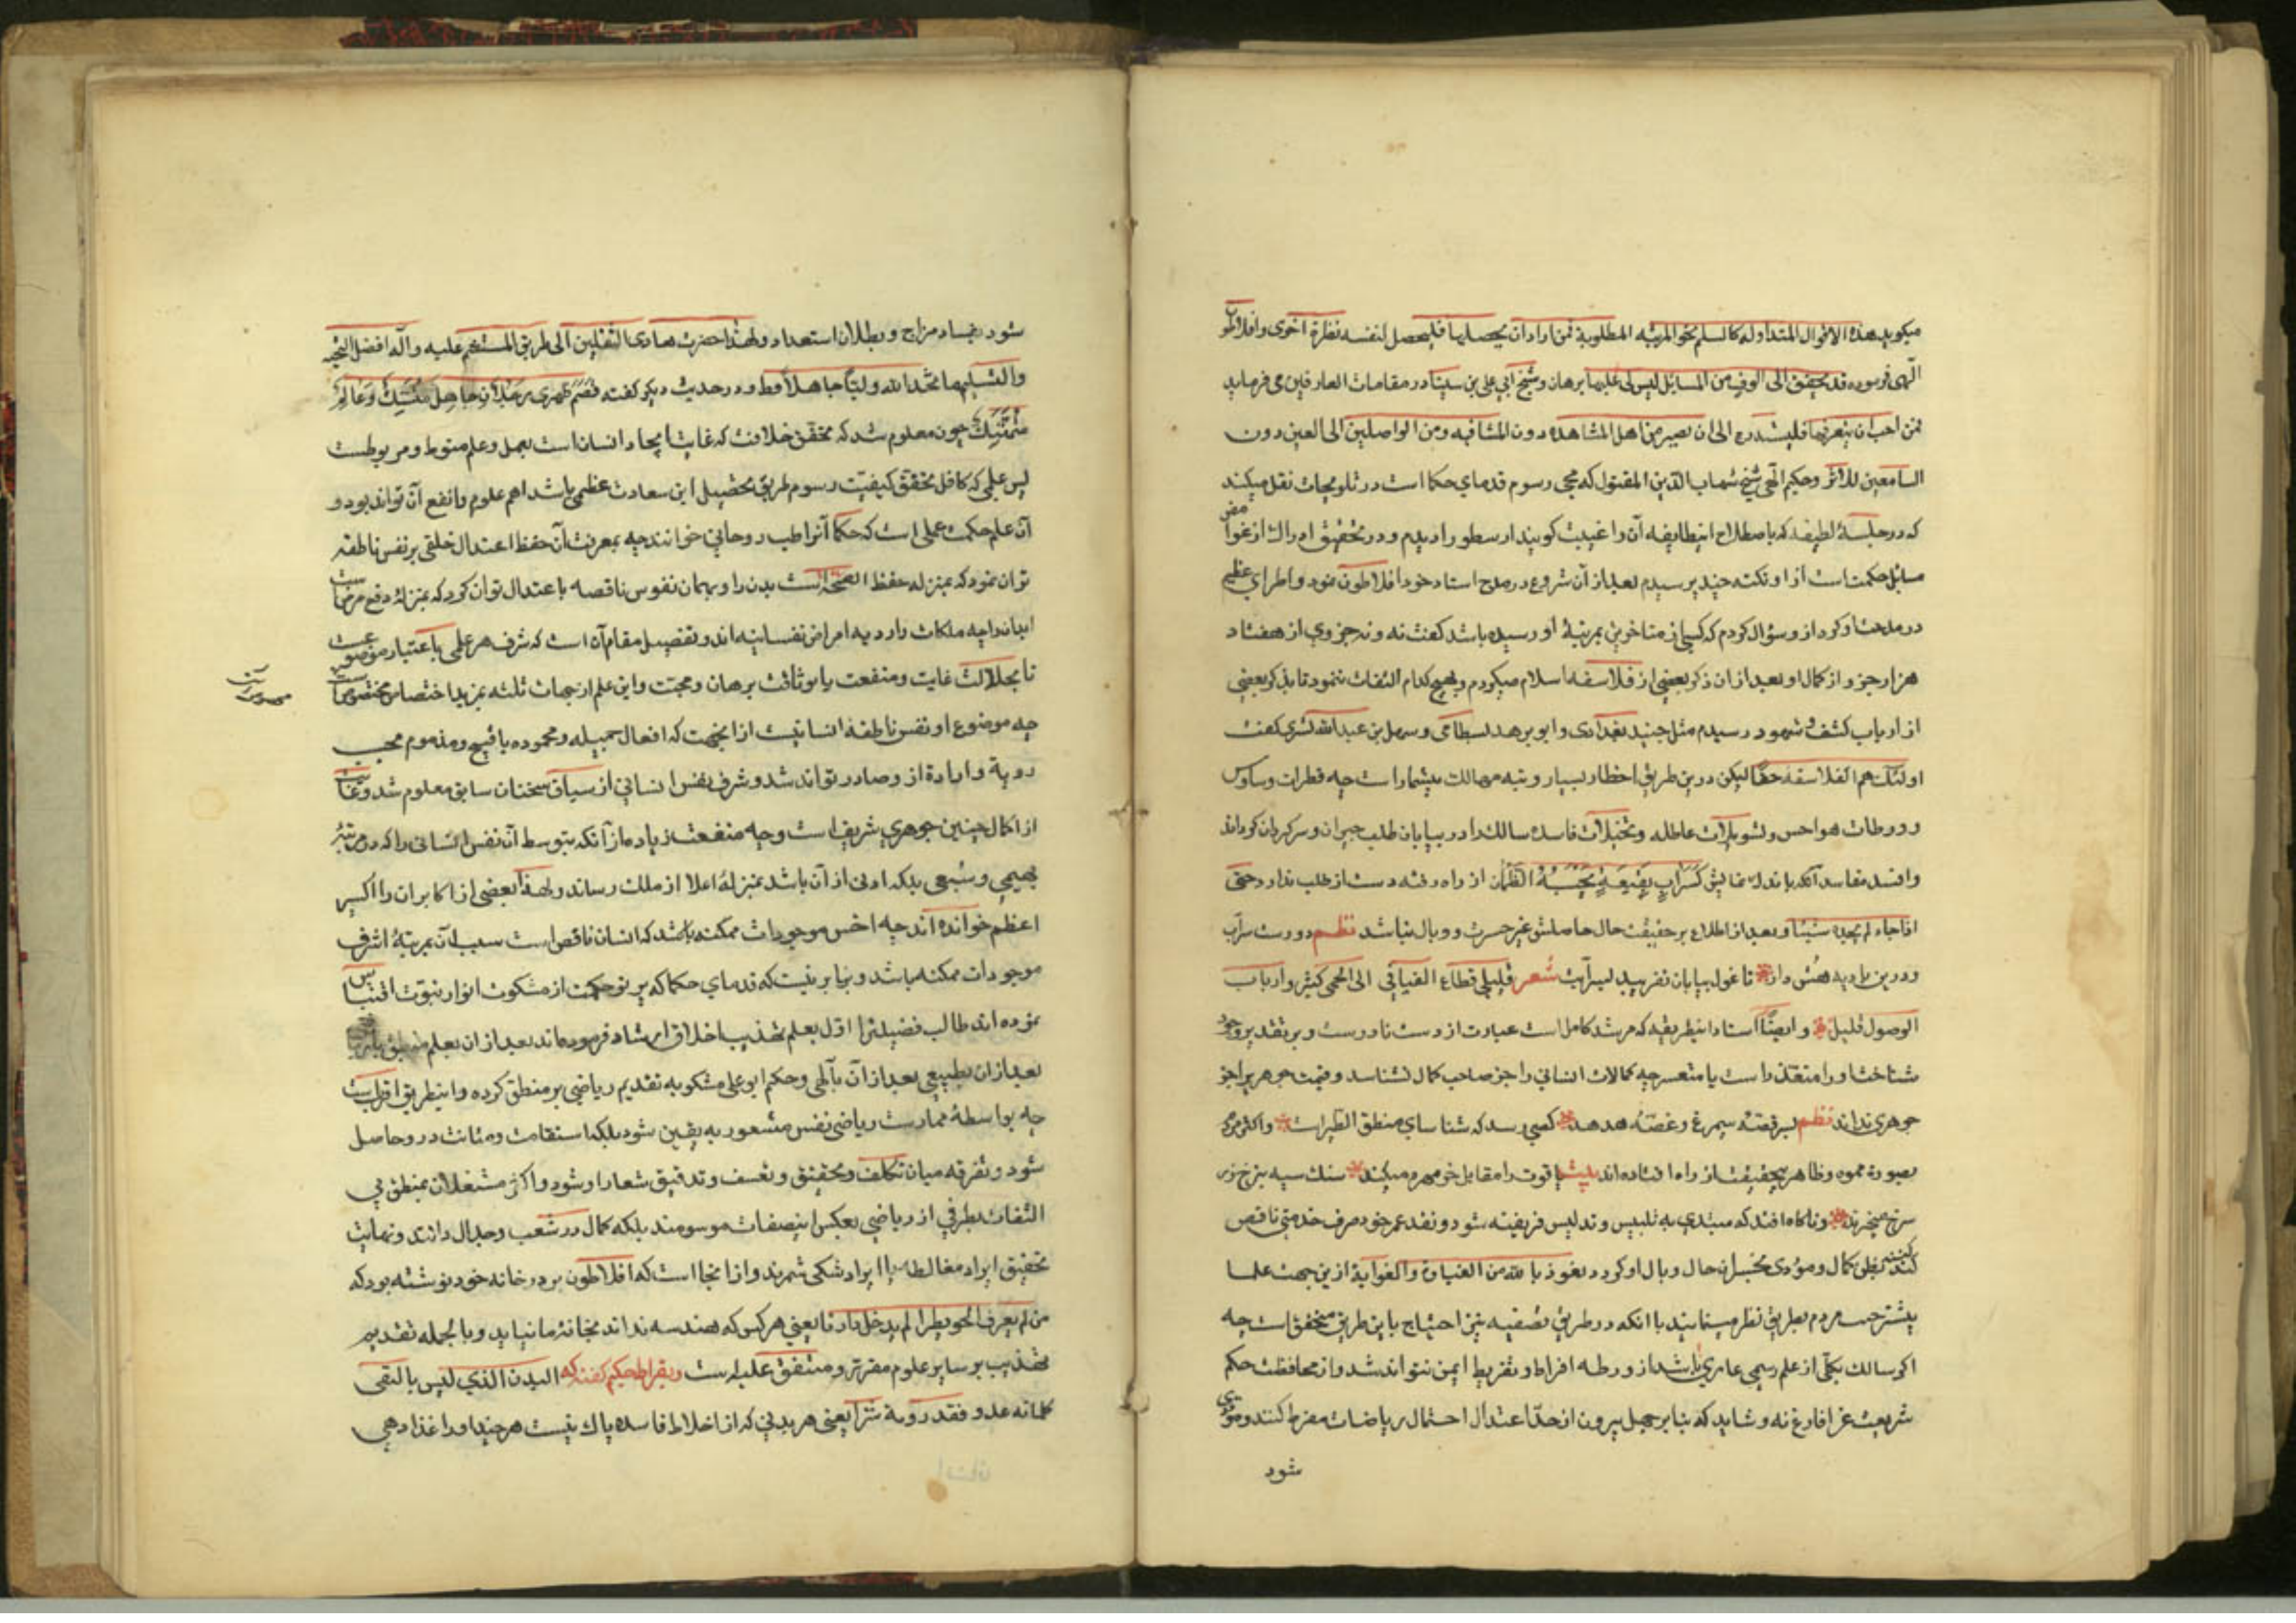 میکوید هذه الاقوال المتداوله کالسلم نحو المرتبة المطلوبة فمن اراد ان یحصلها فلیحصل لنفسه نظرة اخری وافلاطون
الهی فرموده قد تحقق لی الوف من المسایل لیس لی علیها برهان وشیخ ابی علی بن سینا در مقامات العارفین می فرماید
فمن احب ان یتعرفها فلیتدرج الی ان یصیر من اهل المشاهده دون المشافهه ومن الواصلین الی العین دون
السامعین للاثر وحکیم الهی شیخ شهاب الدین المقتول که محیی رسوم قدمای حکما است در تلویحات نقل میکند
که در جلسهٔ لطیفه که باصطلاح اینطایفه آن را غیبت کویند ارسطو را دیدم و در تحقیق ادراک از غوامض
مسایل حکمت است از او نکته چند پرسیدم بعد از آن شروع در مدح استاد خود افلاطون نمود و اطرای عظیم
در مدحت او کرد از و سؤال کردم که کسی از متاخرین بمرتبهٔ او رسیده باشد کفت نه و نه جزوی از هفتاد
هزار جزو از کمال او بعد از ان ذکر بعضی از فلاسفه اسلام میکردم و بهیچ کدام التفات ننمود تا بذکر بعضی
از ارباب کشف و شهود رسیدم مثل جنید بغدادی و ابو یزید بسطامی و سهل بن عبدالله تستری کفت
اولئک هم الفلاسفه حقا لیکن درین طریق اخطار بسیار و تیه مهالک بیشمار است چه قطرات وساوس
و ورطات هواجس و تسویلات عاطله و تخیلات فاسده سالک را در بیابان طلب حیران و سرکردان کرداند
وافسد مفاسد آنکه باندک نمایش کَسَرَابٍ بِقِیعَةٍ یَحْسَبُهُ الظَّمْآن از راه رفته دست از طلب بدارد حتی
اذا جاءه لم یجده شیئا و بعد از اطلاع بر حقیقت حال حاصلش غیر حسرت و وبال نباشد نظم دورست سرآب
ودرین بادیه هُش دار تا غول بیابان نفریبد بسرآبت شعر قلیلی قطاع الفیافی الی الحمی کثیر وارباب
الوصول قلیل و ایضاً استاد اینطریقه که مرشد کامل است عبارت از دست نادرست و بر تقدیر وجود
شناخت او را متعذر است یا متعسر چه کمالات انسانی را جز صاحب کمال نشناسد و قیمت جوهر را جز
جوهری نداند نظم بسر قصّهٔ سیمرغ و غصّهٔ هدهد کسی رسد که شناسای منطق الطیر است و اکثر مردم
بصورة مموه وظاهر بیحقیقت از راه افتاده اند بیت یاقوت را مقابل خرمهره میکنند سنک سیه بنرخ زر
سرخ میخرند و ناکاه افتد که مبتدی به تلبیس و تدلیس فریفته شود و نقد عمر خود صرف خدمتی ناقص
کند بظن کمال و مؤدی بخسران حال و بال او کردد نعوذ بالله من الغباوة والغوایة ازین جهت علما
بیشتر حث مردم بطریق نظر مینمایند با انکه در طریق تصفیه نیز احتیاج باین طریق متحقق است چه
اکر سالک بکلّی از علم رسمی عاری باشد از ورطه افراط و تفریط ایمن نتواند شد و از محافظت حکم
شریعت غرا فارغ نه و شاید که بنابر جهل بیرون از حدّ اعتدال احتمال ریاضات مفرط کنند و مؤدی
شود
شود بفساد مزاج و بطلان استعداد ولهذا حضرت هادی الثقلین الی طریق المستقیم علیه وآله افضل التحیة
والتسلیم ما اتخذ الله ولیّا جاهلاً قط و در حدیث دیکر کفته قصم ظهری رجلان جاهل متنسک وعالم
متهتک چون معلوم شد که تحقق خلافت که غایت ایجاد انسان است بعمل و علم منوط و مربوطست
پس علمی که کافل تحقق کیفیت رسوم طریق تحصیل این سعادت عظمی باشد اهم علوم وانفع آن تواند بود و
آن علم حکمت عملی است که حکما آنرا طب روحانی خوانند چه بمعرفت آن حفظ اعتدال خلقی بر نفس ناطقه
توان نمود که بمنزله حفظ الصحّة است بدن را و بهمان نفوس ناقصه باعتدال توان کرد که بمنزلهٔ دفع مرض است
ابدان را چه ملکات ردیه امراض نفسانیه اند و تفصیل مقام آن است که شرف هر علمی یا باعتبار موضوعست
یا بجلالت غایت ومنفعت یا بوثاقت برهان و حجت و این علم از جهات ثلثه بمزید اختصاص مخصوص است
چه موضوع او نفس ناطقه انسانیست از انجهت که افعال جمیله و محموده یا قبیح و مذموم بحسب
رویة وارادة از و صادر تواند شد و شرف نفس انسانی از سیاق سخنان سابق معلوم شد وغایت
او اکمال چنین جوهری شریف است و چه منفعت زیاده از آنکه بتوسط آن نفس انسانی را که در مرتبهٔ
بهیمی و سَبُعی بلکه ادنی از آن باشد بمنزلهٔ اعلا از ملک رساند ولهذا بعضی از اکابر ان را اکسیر
اعظم خوانده اند چه اخس موجودات ممکنه باشد که انسان ناقص است بسبب آن بمرتبهٔ اشرف
موجودات ممکنه باشد و بنابرینست که قدمای حکما که پرتو حکمت از مشکوت انوار نبوّت اقتباس
نموده اند طالب فضیلترا اوّل بعلم تهذیب اخلاق ارشاد فرموده اند بعد از ان بعلم منطق
بعد از ان بطبیعی بعد از آن بآلهی وحکیم ابو علی مسکویه تقدیم ریاضی بر منطق کرده و اینطریق اقرب است
چه بواسطهٔ ممارست ریاضی نفس مشعور به یقین شود بلکه استقامت و متانت در و حاصل
شود و تفرقه میان تکلف و تحقیق و تعسف و تدقیق شعار او شود و اکثر مشتغلان بمنطق بی
التفات بطرفی از ریاضی بعکس اینصفات موسومند بلکه کمال در شَعَب وجدال دانند و نهایت
تحقیق ایراد مغالطه یا ایراد شکی شمرند و از انجا است که افلاطون بر در خانه خود نوشته بود که
من لم یعرف الجومطرا لم یدخل دارنا یعنی هر کس که هندسه نداند بخانهٔ ما نیاید و بالجمله تقدیم
تهذیب بر سایر علوم مقرر و متفق علیه است و بقراط حکیم کفته که البدن الذی لیس بالنقی
کلما تغذو فقد زوده شرّا یعنی هر بدنی که از اخلاط فاسده پاک نیست هر چند او را غذا دهی